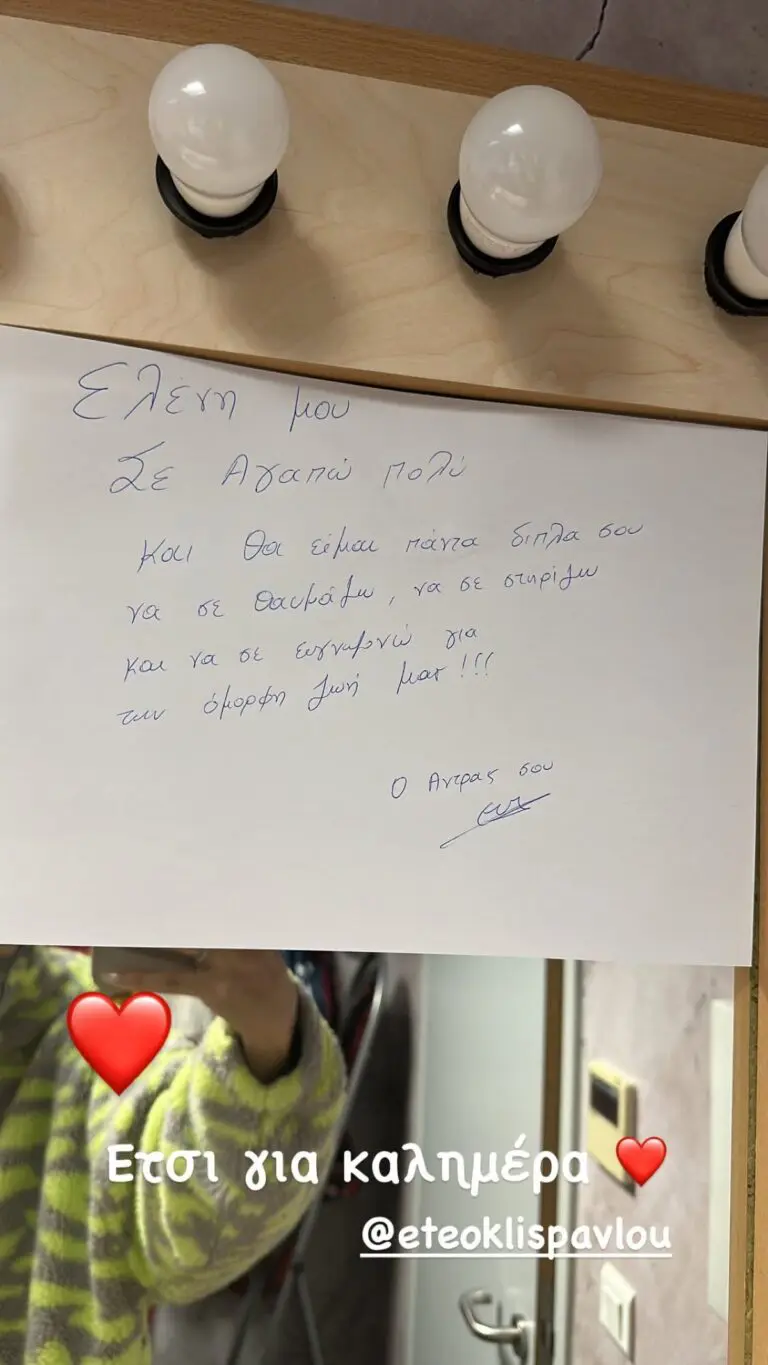 Ελένη μου
Σε Αγαπώ πολύ
και θα είμαι πάντα διπλα σου
να σε θαυμάζω, να σε στηρίζω
και να σε ευγνωμονώ για
την όμορφη ζωή μας!!!
Ο Αντρας σου
Ετσι για καλημέρα
@eteoklispavlou